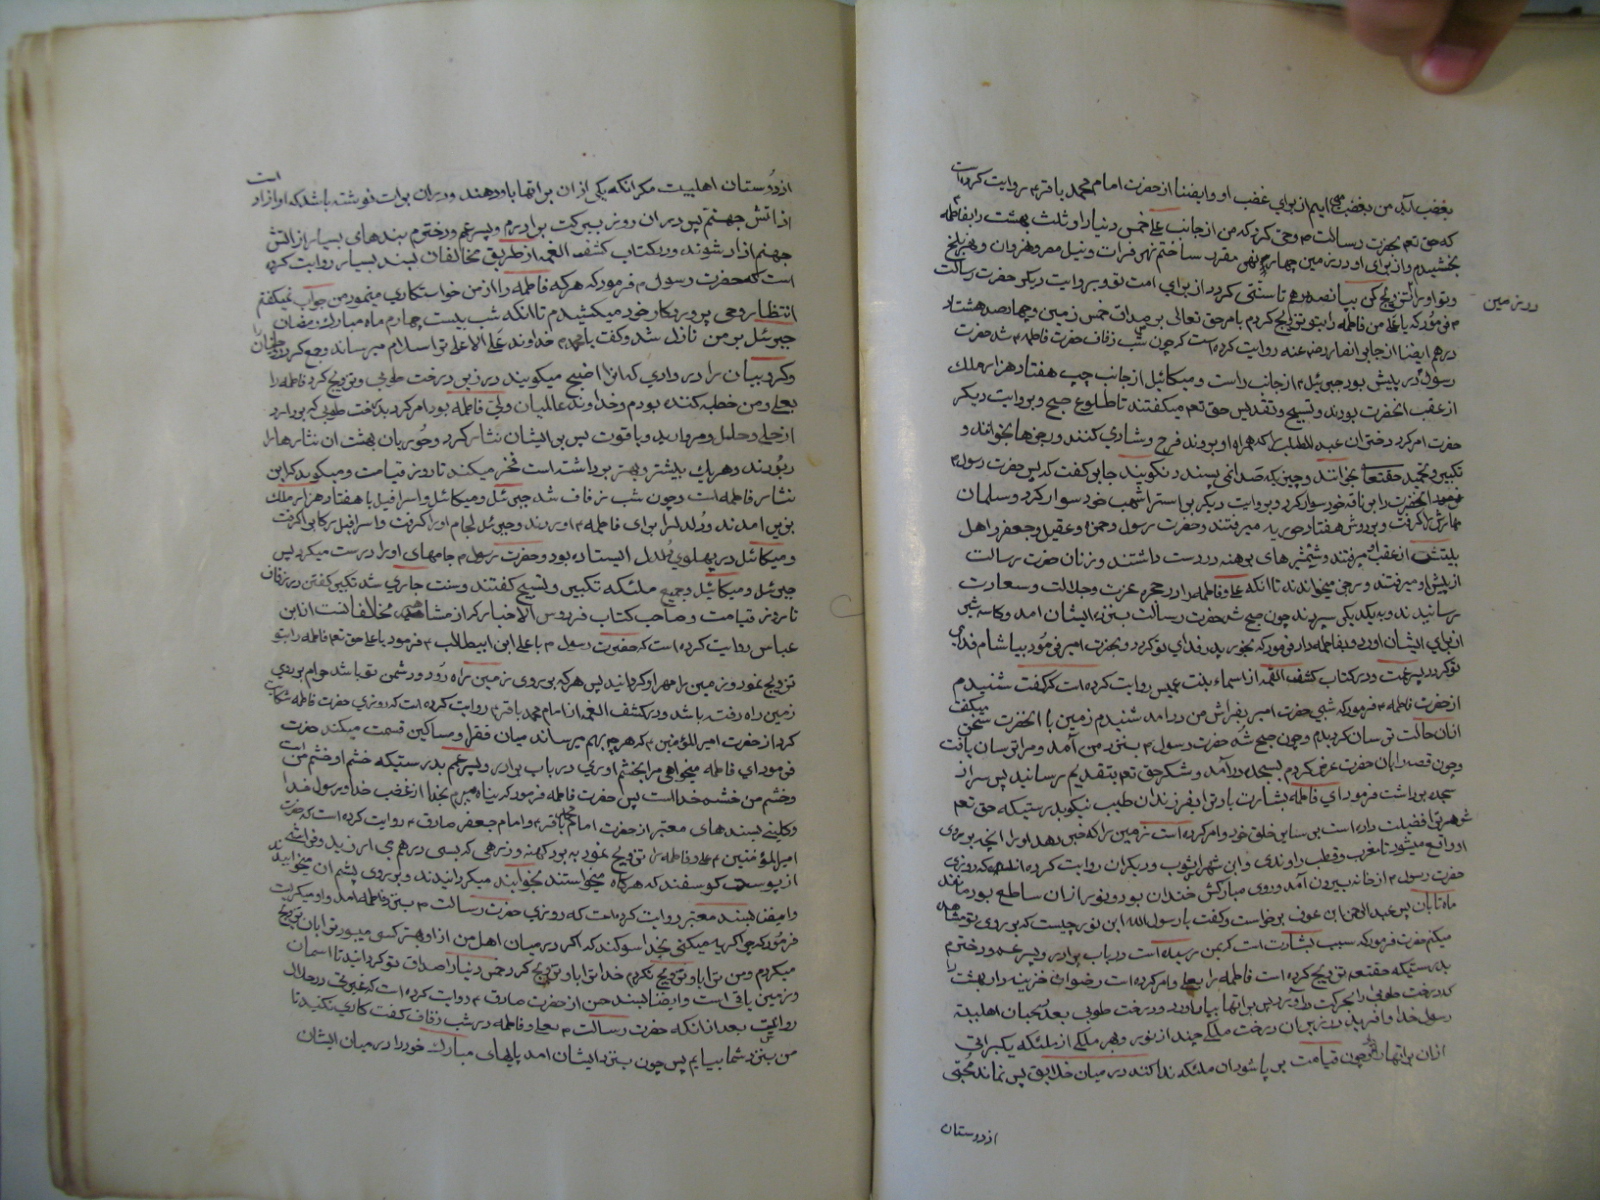 بغضب آید من بغضب می ایم از برای غضب او و ایضا از حضرت امام محمد باقر ۴ روایت کرده است
که حق تعم بحضرت رسالت ۴ وحی کرد که من از جانب علی خمس دنیا را و ثلث بهشت را بفاطمه
بخشیدم و از برای او در زمین چهار نهر مقرر ساختم نهر فرات و نیل مصر و نهروان و نهر بلخ
در زمین
و تو او را تزویج کن بپانصد درهم تا سنتی کردد از برای امت تو و بروایت دیکر حضرت رسالت
۴ فرمود که یا علی من فاطمه را بتو تزویج کردم بامر حق تعالی بر صداق خمس زمین و چهار صد هشتاد
درهم ایضا از جابر انصاری رضی عنه روایت کرده است که چون شب زفاف حضرت فاطمه ۴ شد حضرت
رسول در پیش بود جبرئیل ۴ از جانب راست و میکائیل از جانب چپ هفتاد هزار ملک
از عقب انحضرت بودند و تسبیح و تقدیس حق تعم میکفتند تا طلوع صبح و بروایت دیکر
حضرت امر کرد دختران عبد المطلب را که همراه او بروند فرح و شادی کنند و رجزها بخوانند و
تکبیر و تحمید حقتعا بخوانند و چیزی که خدا نمی پسندد نکویند جابر کفت که پس حضرت رسول ۴
فرمود انحضرت را بر ناقه خود سوار کرد و بروایت دیکر بر استر اشهب خود سوار کرد و سلمان
مهارش را کرفت و بر دورش هفتاد حوریه میرفتند و حضرت رسول و حمزه و عقیل و جعفر و اهل
بیتش از عقب میرفتند و شمشیرهای برهنه در دست داشتند و زنان حضرت رسالت
از پیش او میرفتند و رجز میخواندند تا انکه علی و فاطمه را در حجره عزت و جلالت و سعادت
رسانیدند و بیکدیکر سپردند چون صبح شد حضرت رسالت بنزد ایشان امد و کاسه شیر
از برای ایشان اورد و بفاطمه داد و فرمود که بخور پدر فدای تو کردد و بحضرت امیر فرمود بیاشام فدای
تو کردد پسر عمت و در کتاب کشف الغمه از اسماء بنت عمیس روایت کرده است که کفت شنیدم
از حضرت فاطمه ۴ فرمود که شبی حضرت امیر بفراش من درامد شنیدم زمین با انحضرت سخن میکفت
از ان حالت ترسان کردیدم و چون صبح شد حضرت رسول ۴ بنزد من آمد و مرا ترسان یافت
و چون قصه را بان حضرت عرض کردم بسجده درآمد و شکر حق تعم بتقدیم رسانید پس سر از
سجده برداشت فرمود ای فاطمه بشارت باد ترا بفرزندان طیب نیکو بدرستیکه حق تعم
شوهر ترا فضیلت داده است بر سایر خلق خود و امر کرده است زمین را که خبر دهد او را انچه بر روی
او واقع میشود تا مغرب و قطب راوندی و ابن شهراشوب و دیکران روایت کرده اند که روزی
حضرت رسول ۴ از خانه بیرون آمد و روی مبارکش خندان بود و نور از ان ساطع بود مانند
ماه تابان پس عبد الرحمن ابن عوف برخاست و کفت یا رسول الله این نور چیست که بر روی تو مشاهده
میکنم حضرت فرمود که سبب بشارت است که بمن رسیده است در باب برادر و پسر عم و دخترم
بدرستیکه حقتعم تزویج کرده است فاطمه را بعلی و امر کرده است رضوان خزینه دار بهشت را
که درخت طوبی را بحرکت درآورد پس براتها بیار اورد درخت طوبی بعدد محبان اهلبیت
رسول خدا و افرید در زیر ان درخت ملکی چند از نور و بهر ملکی از ملئکه یک براتی
از ان براتها و چون قیامت بر پا شود ان ملئکه ندا کنند در میان خلایق پس نماند محبی
از دوستان
از دوستان اهلبیت مکر انکه یکی از ان براتها باو دهند و در ان برات نوشته باشد که او ازاد است
از اتش جهنم پس در ان روز ببرکت برادرم و پسر عم و دخترم بندهای بسیار از اتش
جهنم ازاد شوند و در کتاب کشف الغمه از طریق مخالفان بسند بسیار روایت کرده
است که حضرت رسول ۴ فرمود که هر که فاطمه را از من خواستکاری مینمود من جواب نمیکفتم
انتظار وحی پروردکار خود میکشیدم تا انکه شب بیست چهارم ماه مبارک رمضان
جبرئیل بر من نازل شد و کفت یا محمد خداوند علی الاعلی ترا سلام میرساند و جمع کرد روحانیان را
و کروبیان را در وادی که انرا افیح میکویند در زیر درخت طوبی و تزویج کرد فاطمه را
بعلی و من خطبه کننده بودم و خداوند عالمیان ولی فاطمه بود امر کرد درخت طوبی که بر اورد
از حلی و حلل و مروارید و یاقوت پس بر ایشان نثار کرد و حوریان بهشت ان نثارها را
ربودند و هر یک بیشتر و بهتر برداشته است فخر میکند تا روز قیامت و میکوید که این
نثار فاطمه است و چون شب زفاف شد جبرئیل و میکائیل و اسرافیل با هفتاد هزار ملک
بزیر امدند و دلدل را برای فاطمه ۴ اوردند و جبرئیل لجام او را کرفت و اسرافیل رکاب کرفت
و میکائیل در پهلوی دلدل ایستاده بود و حضرت رسول ۴ جامهای او را درست میکرد پس
جبرئیل و میکائیل و جمیع ملئکه تکبیر و تسبیح کفتند و سنت جاری شد تکبیر کفتن در زفاف
تا روز قیامت و صاحب کتاب فردوس الاخبار که از مشاهیر مخالفانست از ابن
عباس روایت کرده است که حضرت رسول ۴ با علی ابن ابیطالب ۴ فرمود یا علی حق تعم فاطمه را بتو
تزویج نمود و زمین را مهر او کردانید پس هر که بر روی زمین راه رود و دشمن تو باشد حرام بر روی
زمین راه رفته باشد و در کشف الغمه از امام محمد باقر ۴ روایت کرده است که روزی حضرت فاطمه شکایت
کرد از حضرت امیر المؤمنین ۴ که هر چه بهم میرساند میان فقرا و مساکین قسمت میکند حضرت
فرمود ای فاطمه میخواهی مرا بخشم اوری در باب برادر و پسر عم بدرستیکه خشم او خشم من است
و خشم من خشم خداست پس حضرت فاطمه فرمود که پناه میبرم بخدا از غضب خدا و رسول خدا
و کلینی بسندهای معتبر از حضرت امام محمد باقر ۴ و امام جعفر صادق ۴ روایت کرده است که حضرت
امیر المؤمنین ۴ فاطمه را تزویج نمود به برد کهنه و زرهی که بسی درهم می ارزید و فراشی
از پوست کوسفند که هر کاه میخواستند بخوابند میکردانیدند و بر روی پشم ان میخوابیدند
و ایضا بسند معتبر روایت کرده است که روزی حضرت رسالت ۴ بنزد فاطمه امد و او میکریست
فرمود که چرا کریه میکنی بخدا سوکند که اکر در میان اهل من از او بهتر کسی میبود ترا بان تزویج
میکردم و من ترا باو تزویج نکردم خدا ترا باو تزویج کرد و خمس دنیا را صداق تو کردانید تا اسمان
و زمین باقی است و ایضا بسند حسن از حضرت صادق ۴ روایت کرده است که غیرتی در حلال
روا نیست بعد از انکه حضرت رسالت ۴ بعلی و فاطمه در شب زفاف کفت کاری نکنید تا
من بنزد شما بیایم پس چون بنزد ایشان امد پایهای مبارک خود را در میان ایشان